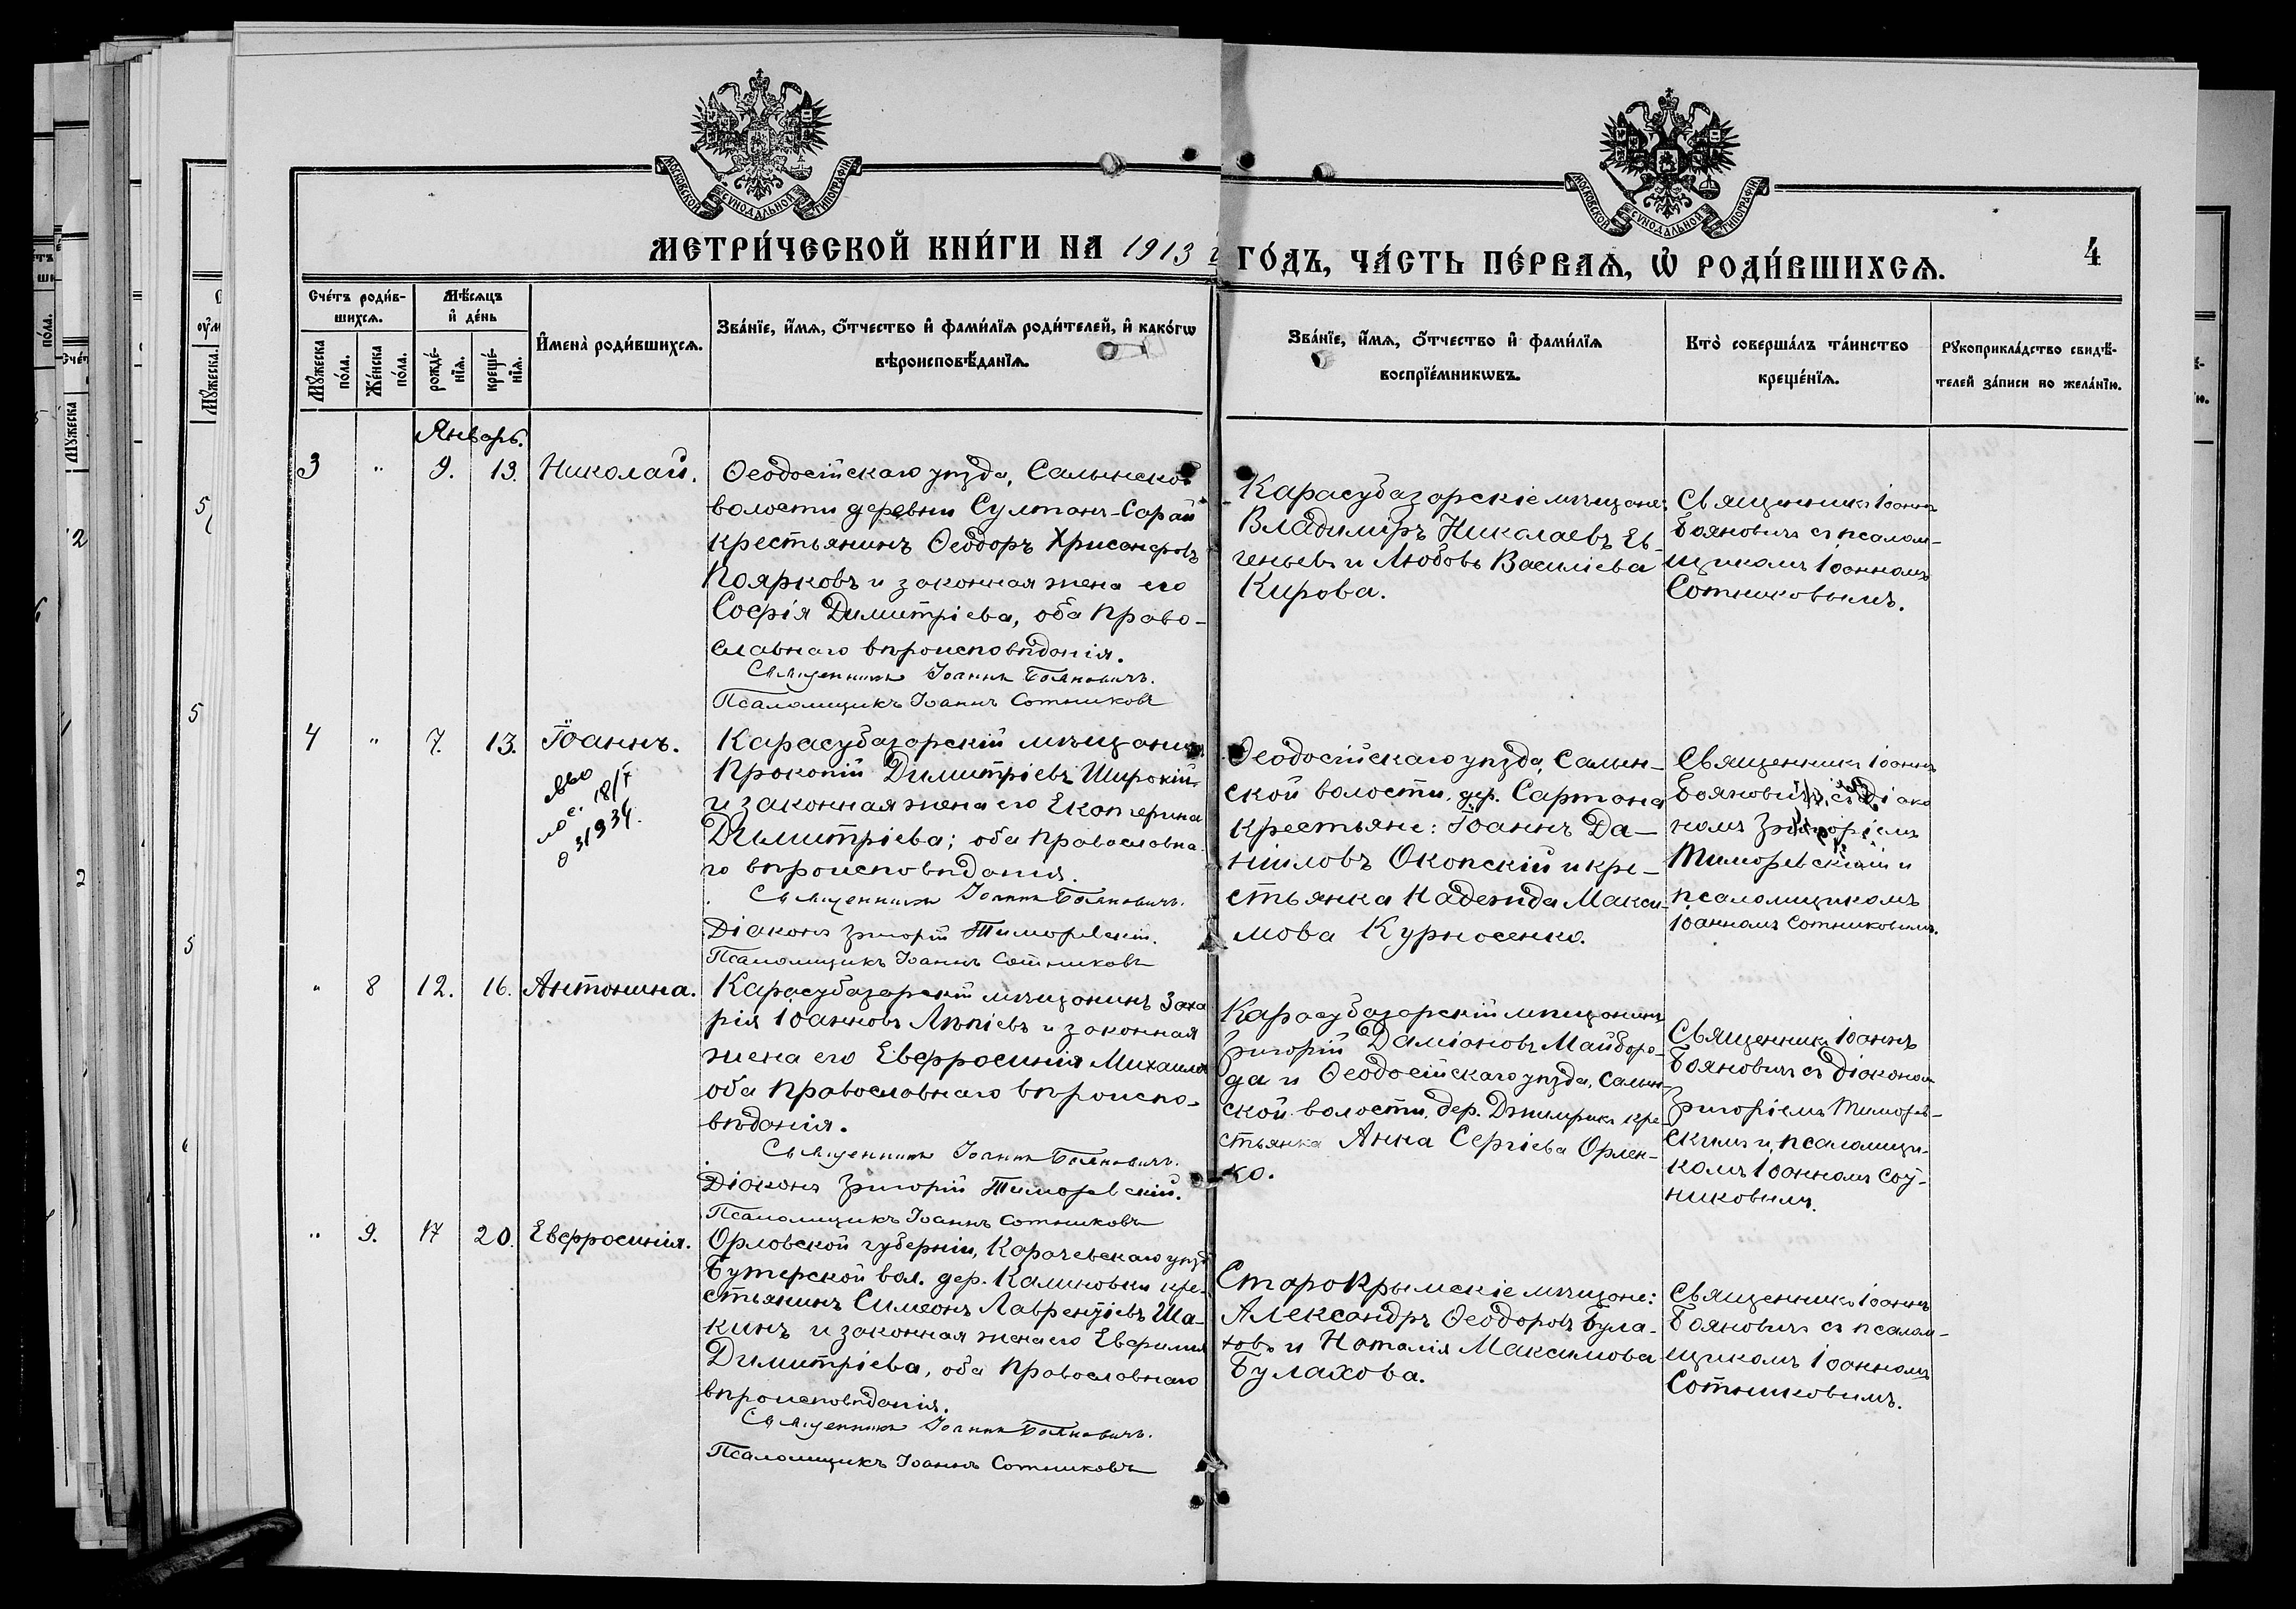 МОСКОВСКОЙ СѴНОДАЛЬНОЙ ТИПОГРАФІИ
МОСКОВСКОЙ СѴНОДАЛЬНОЙ ТИПОГРАФІИ
МЕТРИ́ЧЕСКОЙ КНИ́ГИ НА 1913 й ГО́ДЪ, ЧА́СТЬ ПЕ́РВАѦ, Ѿ РОДИ́ВШИХСѦ.
4
Сче́тъ роди́в-
шихсѧ.
Мѣ́сѧцъ
и҆ де́нь
Мꙋ́жеска
по́ла.
Же́нска
по́ла.
рожде́-
нїѧ.
креще́-
нїѧ.
И҆мена̀ роди́вшихсѧ.
Зва́нїе, и҆́мѧ, ѻ҆́тчество и҆ фами́лїѧ роди́телей, и҆ како́гѡ
вѣроисповѣ́данїѧ.
Зва́нїе, и҆́мѧ, ѻ҆́тчество и҆ фами́лїѧ
воспрїе́мникѡвъ.
Кто̀ соверша́лъ та́инство
креще́нїѧ.
Рꙋкоприкла́дство свидѣ́-
телей за́писи по жела́нїю.
Январь.
3 " 9. 13. Николай.
Ѳеодосійскаго уѣзда, Салынской
волости деревни Султанъ-Сарай
крестьянинъ Ѳеодоръ Хрисанфовъ
Поярковъ и законная жена его
Софія Димитріева, оба право-
славнаго вѣроисповѣданія.
Священникъ Іоаннъ Бояновичъ.
Псаломщикъ Іоаннъ Сотниковъ
Карасубазарскіе мѣщане:
Владиміръ Николаевъ Ев-
геньевъ и Любовь Василіева
Кирова.
Священникъ Іоаннъ
Бояновичъ съ псалом-
щикомъ Іоанномъ
Сотниковымъ.
4 " 7. 13. Іоаннъ.
18/7
31934.
Карасубазарскій мѣщанинъ
Прокопій Димитріевъ Широкій
и законная жена его Екатерина
Димитріева; оба православна-
го вѣроисповѣданія.
Священникъ Іоаннъ Бояновичъ.
Діаконъ Григорій Тимофевскій.
Псаломщикъ Іоаннъ Сотниковъ
Ѳеодосійскаго уѣзда, Салын-
ской волости, дер. Сартана
крестьяне: Іоаннъ Да-
ніиловъ Окопскій и кре-
стьянка Надежда Макси-
мова Курносенко.
Священникъ Іоаннъ
Бояновичъ съ Діако
номъ Григоріемъ
Тимофевскимъ и
псаломщикомъ
Іоанномъ Сотниковымъ.
" 8 12. 16. Антонина.
Карасубазарскій мѣщанинъ Заха
рія Іоанновъ Лѣпіевъ и законная
жена его Евфросинія Михаилова
оба православнаго вѣроиспо-
вѣданія.
Священникъ Іоаннъ Бояновичъ.
Діаконъ Григорій Тимофевскій.
Псаломщикъ Іоаннъ Сотниковъ
Карасубазарскій мѣщанинъ
Григорій Даміановъ Майборо-
да и Ѳеодосійскаго уѣзда, Салын-
ской волости, дер. Джимрикъ кре-
стьянка Анна Сергіева Орлен-
ко.
Священникъ Іоаннъ
Бояновичъ съ Діакономъ
Григоріемъ Тимофев-
скимъ и псаломщи-
комъ Іоанномъ Сот-
никовымъ.
" 9. 17 20. Евфросинія.
Орловской губерніи, Карачевскаго уѣзда
Бутерской вол. дер. Калиновки кре-
стьянинъ Симеонъ Лаврентіевъ Ша-
кинъ и законная жена его Евфимія
Димитріева, оба православнаго
вѣроисповѣданія.
Священникъ Іоаннъ Бояновичъ.
Псаломщикъ Іоаннъ Сотниковъ
Старокрымскіе мѣщане:
Александръ Ѳеодоровъ Була-
ховъ и Наталія Максимова
Булахова.
Священникъ Іоаннъ
Бояновичъ съ псалом-
щикомъ Іоанномъ
Сотниковымъ.